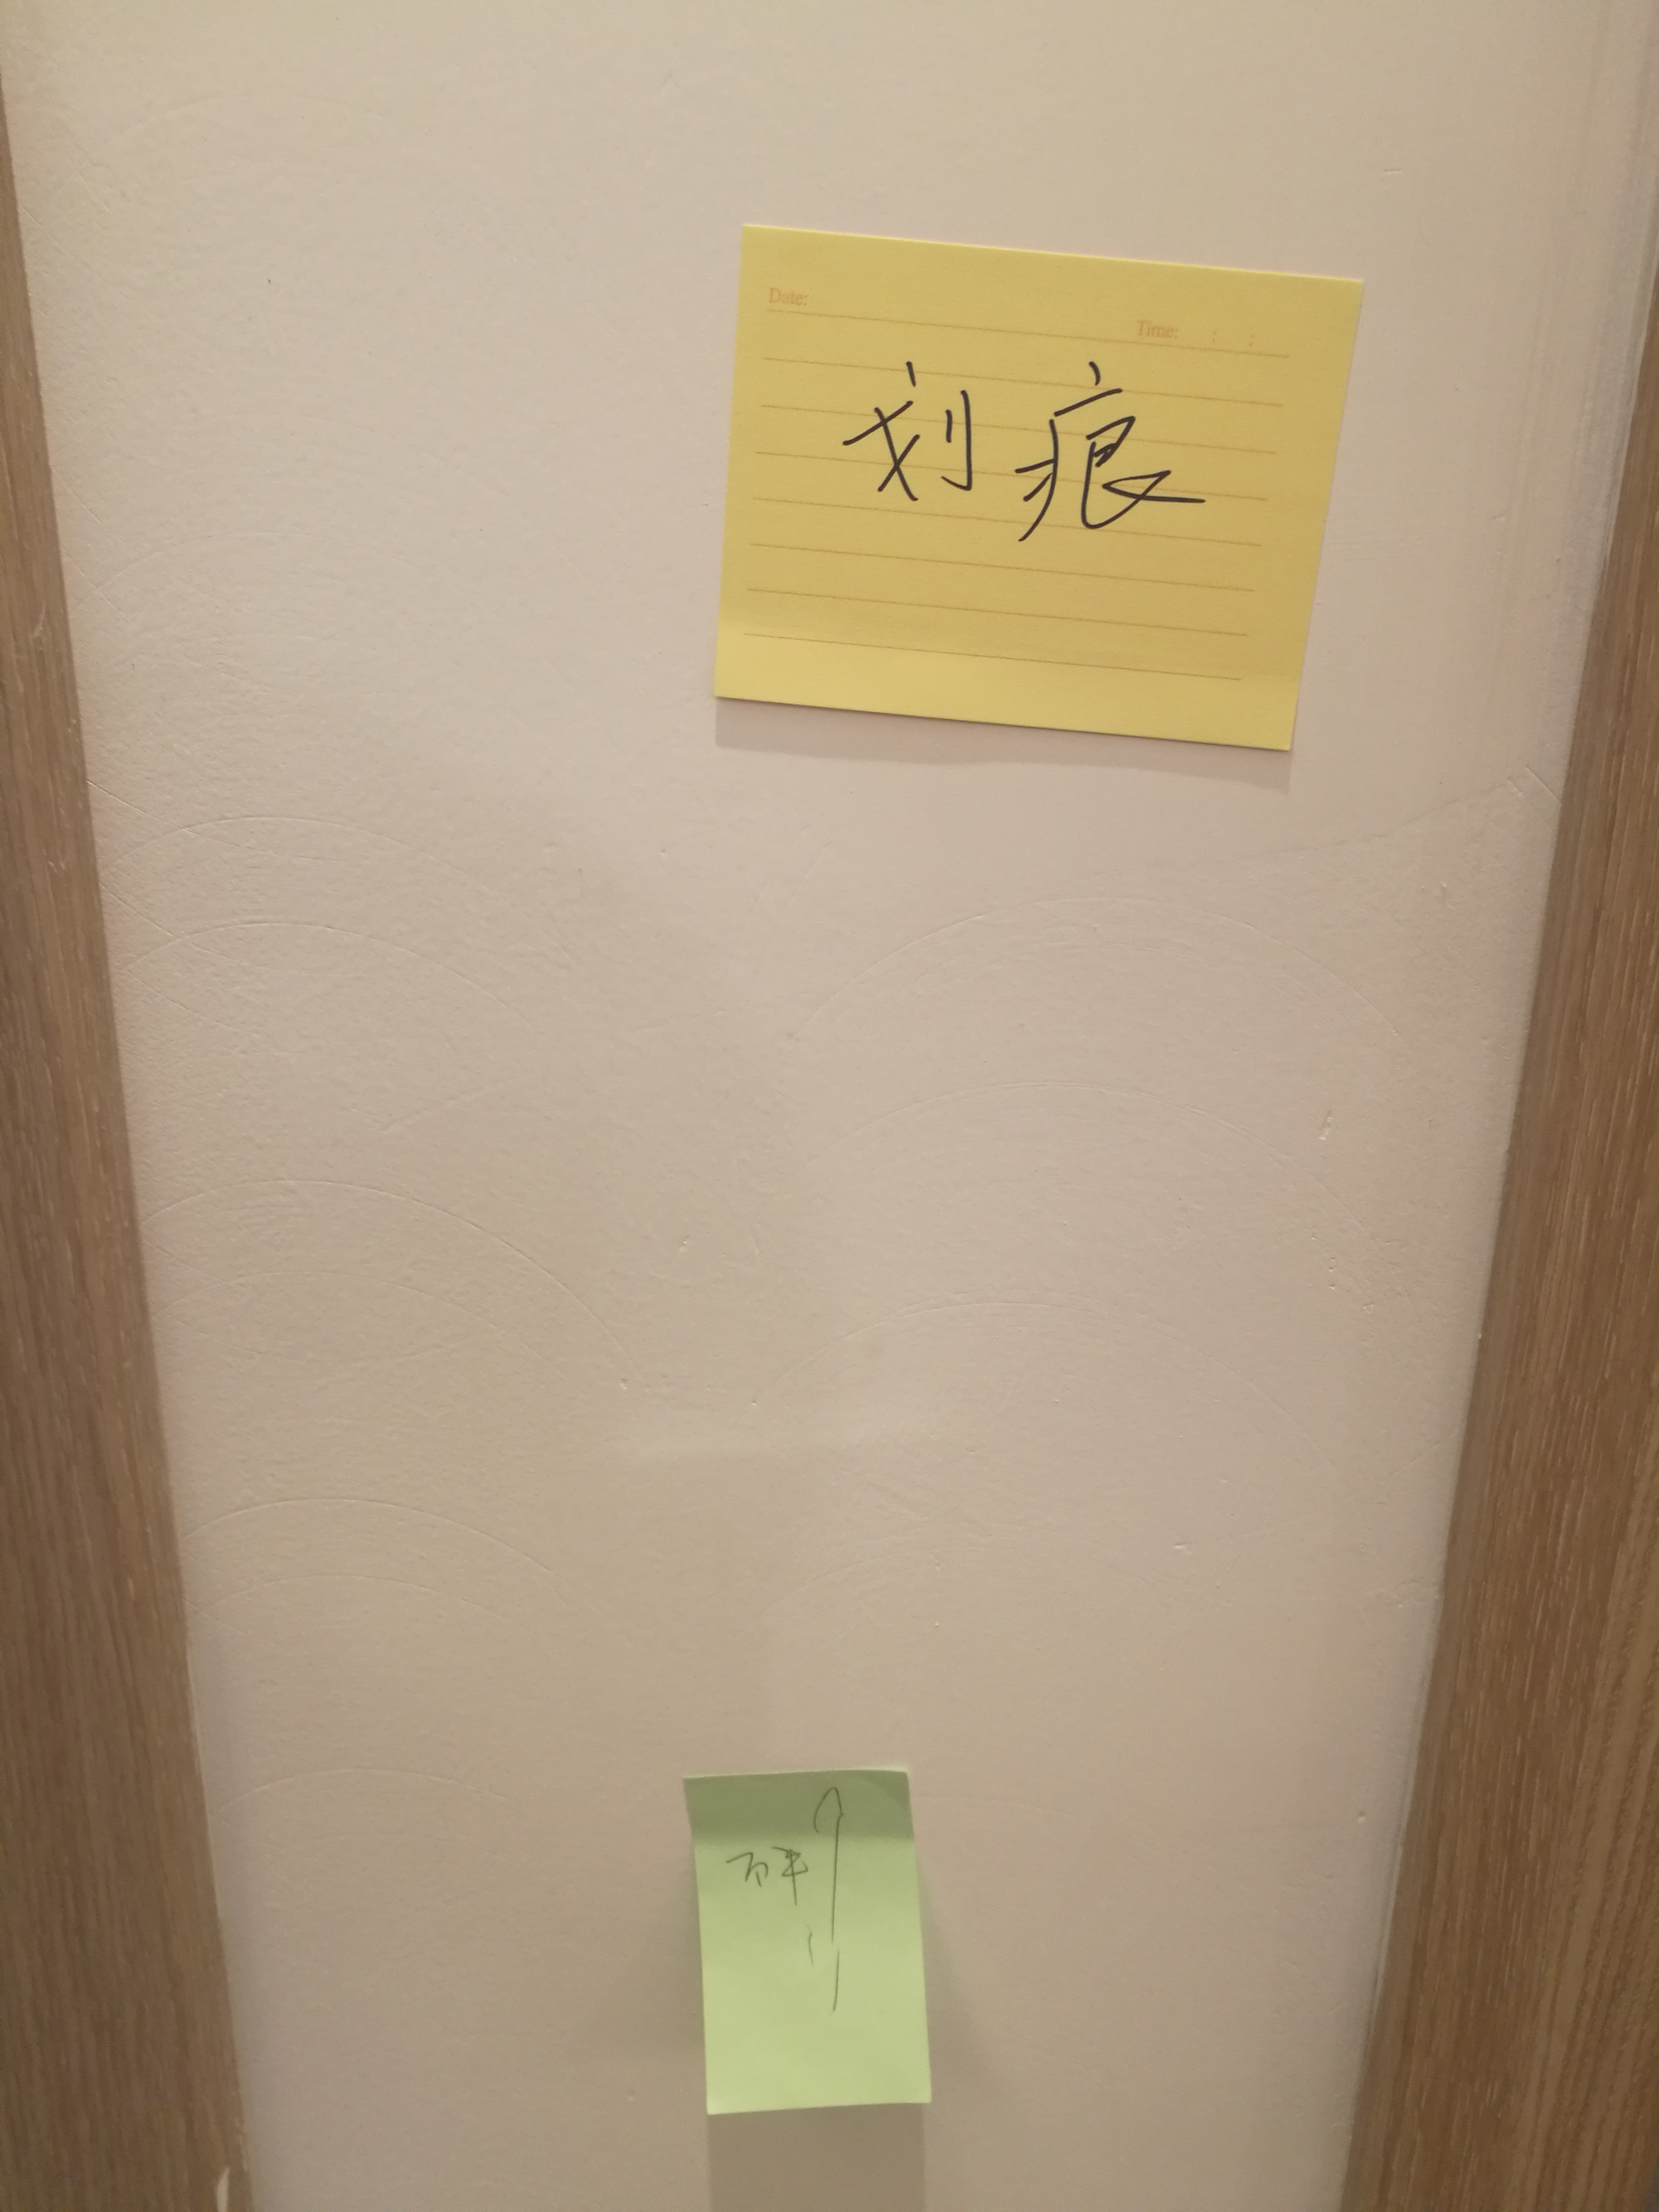 Date:
Time: : :
划痕